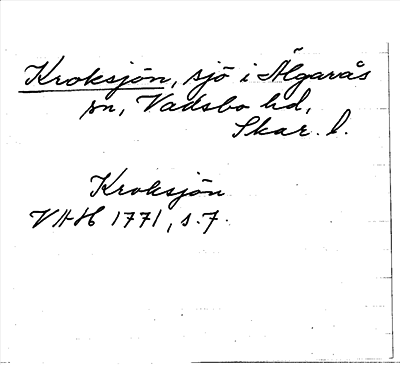 Kroksjön, sjö i Älgarås
sn, Vadsbo hd,
Skar. l.
Kroksjön
VAH 1771, s. 7.